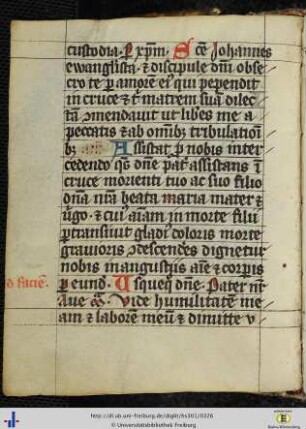 custodia. P xpm. Sce Johannes
ewangilista. & discipule dni obse
cro te p amore ei qui pependit
in cruce & t matrem sua dilec
ta 9mendauit ut libes me a
peccatis & ab omib3 tribulation
b3 Assistat p nobis inter
cedendo qs dne pat assistans i
cruce morienti tuo ac suo filio
dna nra beata maria mater &
uigo. & cui aiam in morte filii
ptransiuit gladi doloris morte
grauioris 9descendes dignetur
nobis in angustiis aie & corpis
p eund. Usqueq dne. Pater nr
d faciē.
Aue Vide humilitatem me
am & laborem meu & dimitte v
http://dl.ub.uni-freiburg.de/diglit/hs301/0326
© Universitätsbibliothek Freiburg